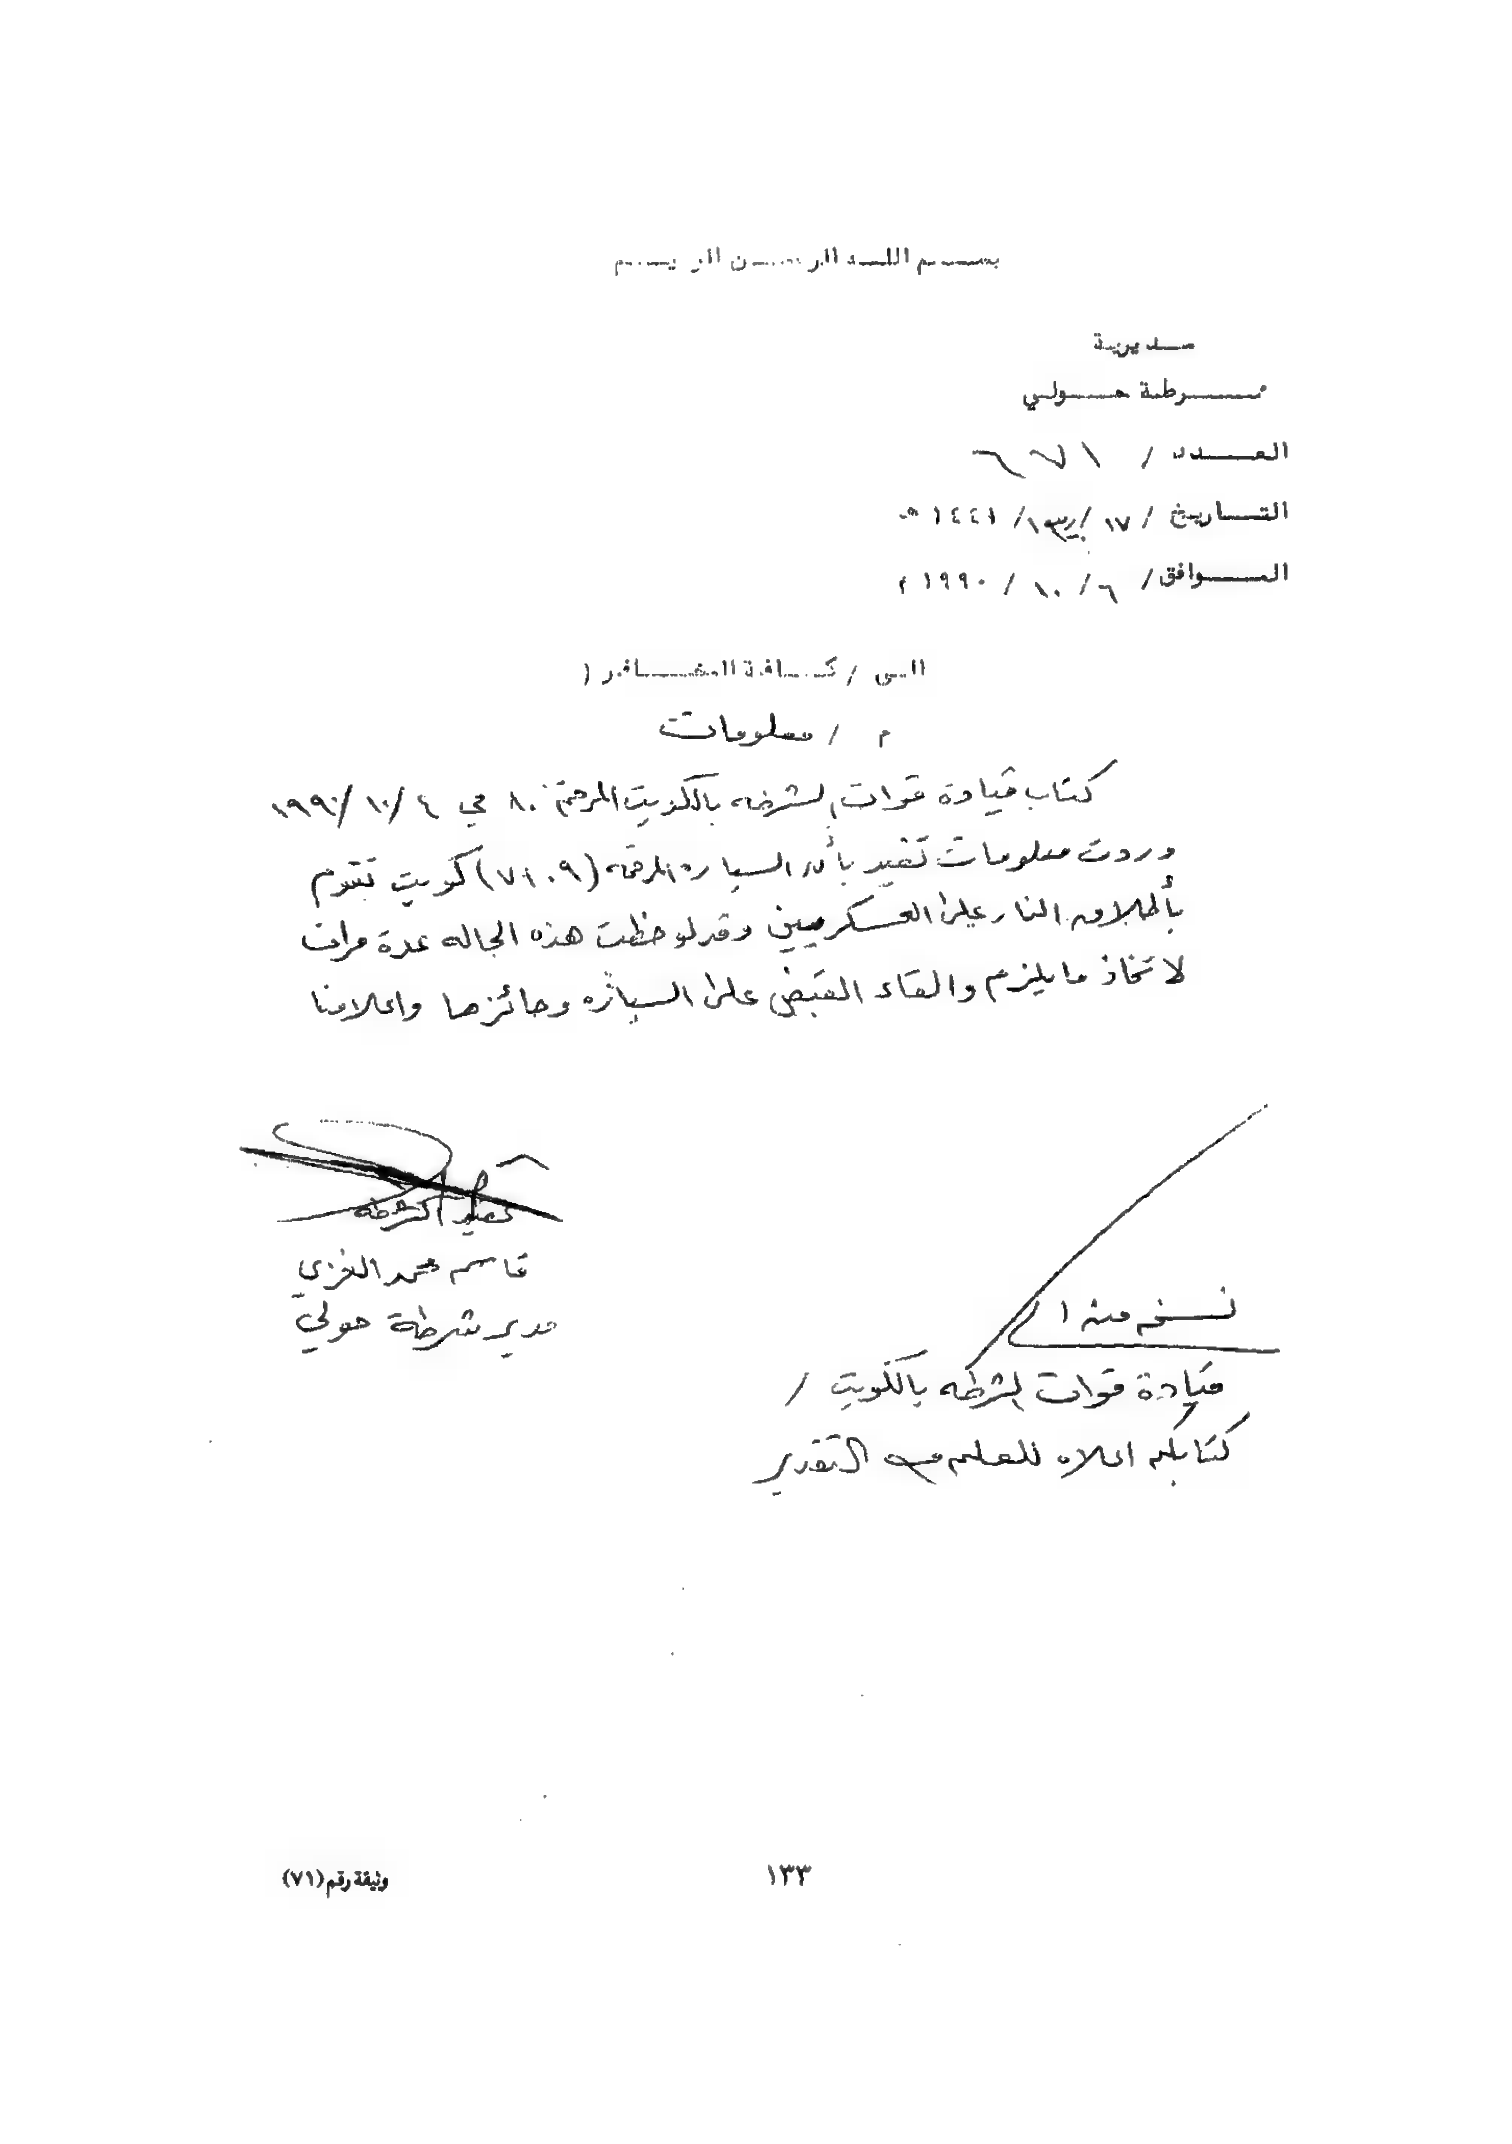 بسم الله الرحمن الرحيم
مديرية
شرطة حولي
العدد / ٦٧١
التاريخ / ١٧ / ر١ / ١٤٤١ هـ
الموافق / ٦ / ١٠ / ١٩٩٠ م
الى / كافة المخافر (
م / معلومات
كتاب قيادة قوات الشرطه بالكويت المرقم ٨٠ في ٤ / ١٠ / ١٩٩٠
وردت معلومات تفيد بأن السياره المرقمه (٧١٠٩) كويت تقوم
بأطلاق النار على العسكريين وقد لوحظت هذه الحاله عدة مرات
لاتخاذ مايلزم والقاء القبض على السياره وحائزها واعلامنا
عقيد الشرطه
قاسم محمد الغزي
مدير شرطة حولي
نسخه منه ا
قيادة قوات الشرطه بالكويت /
كتابكم اعلاه للعلم مع التقدير
١٣٣
وثيقة رقم (٧١)